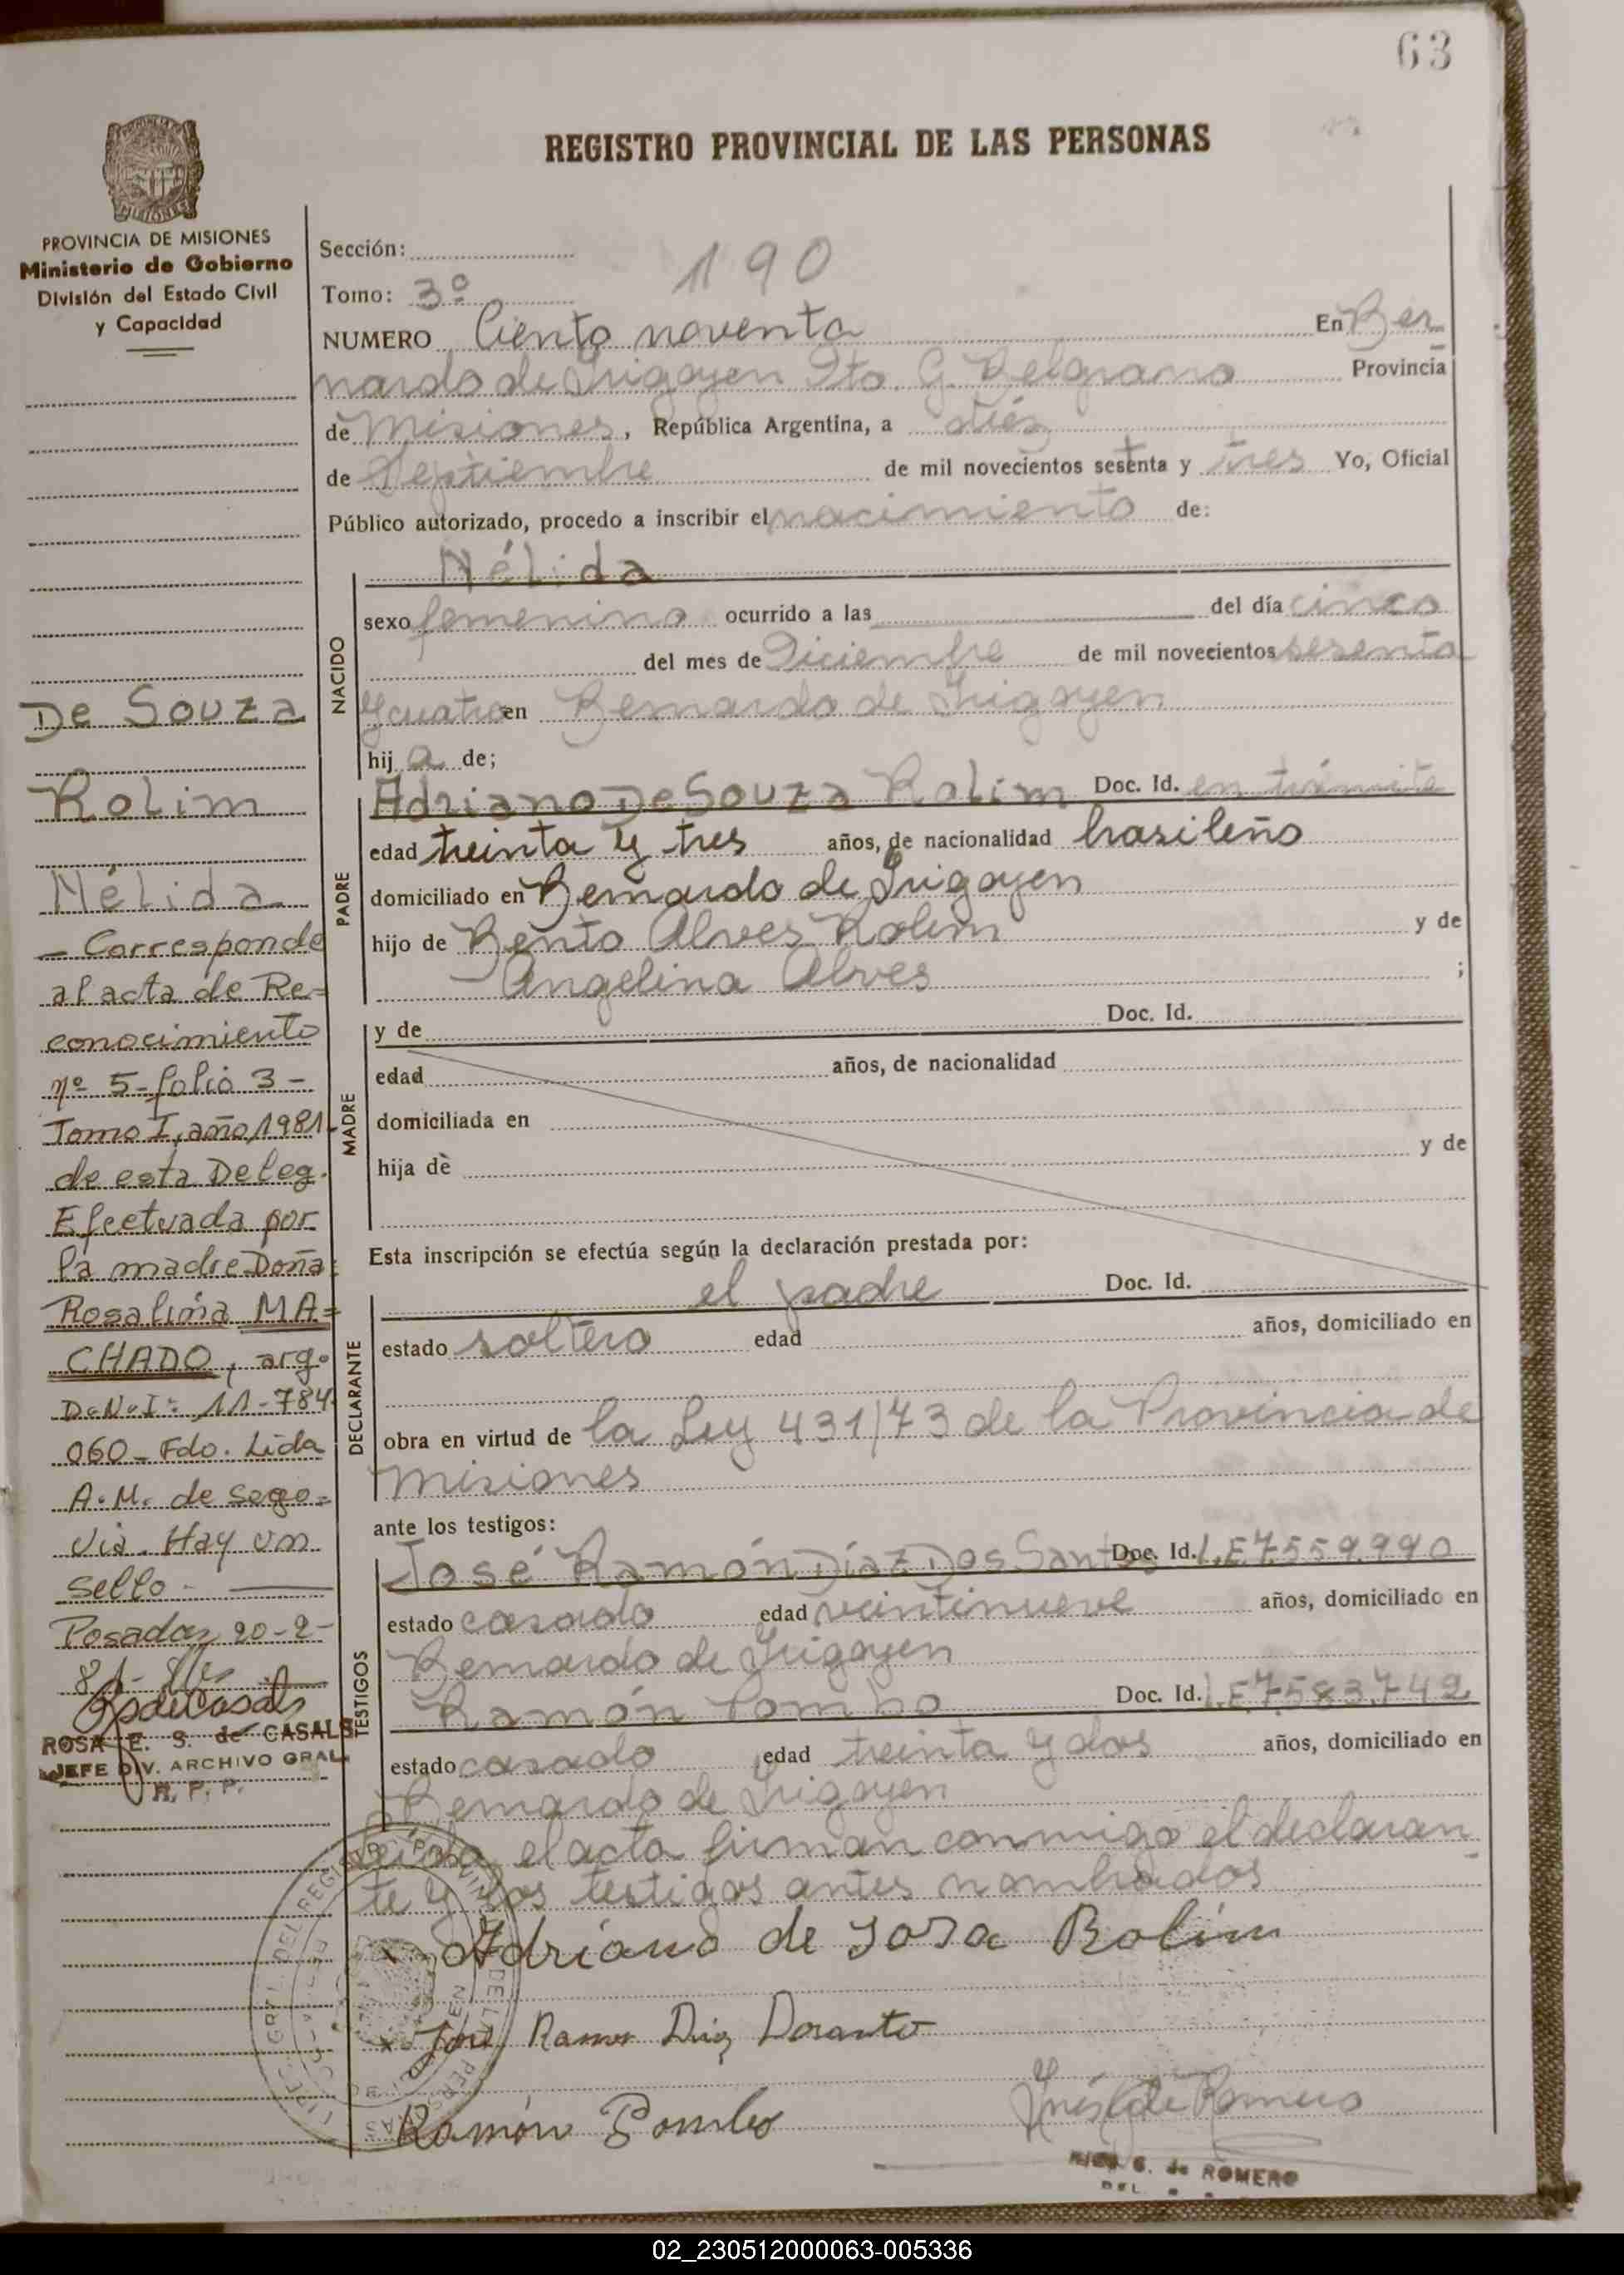 63
REGISTRO PROVINCIAL DE LAS PERSONAS
PROVINCIA DE MISIONES
Ministerio de Gobierno
División del Estado Civil
y Capacidad
Sección:
190
Tomo: 3º
NUMERO Ciento noventa En Ber
nardo de Irigoyen Dto. G. Belgrano Provincia
de Misiones, República Argentina, a diéz
de Septiembre de mil novecientos sesenta y tres Yo, Oficial
Público autorizado, procedo a inscribir el nacimiento de:
Nélida
NACIDO
sexo femenino ocurrido a las del día cinco
del mes de Diciembre de mil novecientos sesenta
y cuatro en Bernardo de Irigoyen
hij a de;
PADRE
Adriano De Souza Rolim Doc. Id. en trámite
edad treinta y tres años, de nacionalidad brasileño
domiciliado en Bernardo de Irigoyen
hijo de Bento Alves Rolim y de
Angelina Alves ;
MADRE
y de Doc. Id.
edad años, de nacionalidad
domiciliada en
hija de y de
Esta inscripción se efectúa según la declaración prestada por:
DECLARANTE
el padre Doc. Id.
estado soltero edad años, domiciliado en
obra en virtud de la Ley 431/73 de la Provincia de
Misiones
ante los testigos:
TESTIGOS
José Ramón Díaz Dos Santos Doc. Id. L.E 7.559.990
estado casado edad veintinueve años, domiciliado en
Bernardo de Irigoyen
Ramón Pombo Doc. Id. L.E 7.583.742
estado casado edad treinta y dos años, domiciliado en
Bernardo de Irigoyen
Leída el acta firman conmigo el declaran
te y los testigos antes nombrados
Adriano de Sosa Rolim
José Ramon Diaz Dosanto
Ramón Pombo
Inés G de Romero
G. de ROMERO
De Souza
Rolim
Nélida
- Corresponde
al acta de Re=
conocimiento
nº 5- folio 3 -
Tomo I, año 1981-
de esta Deleg.
Efectuada por
la madre Doña:
Rosalina MA=
CHADO, arg.
D.N.I: 11-784
060- Fdo. Lida
A.M. de Sego=
via. Hay un
sello.-
Posadas 20-2-
81-
ROSA E. S. de CASALS
JEFE DIV. ARCHIVO GRAL.
R. P. P.
02_230512000063-005336